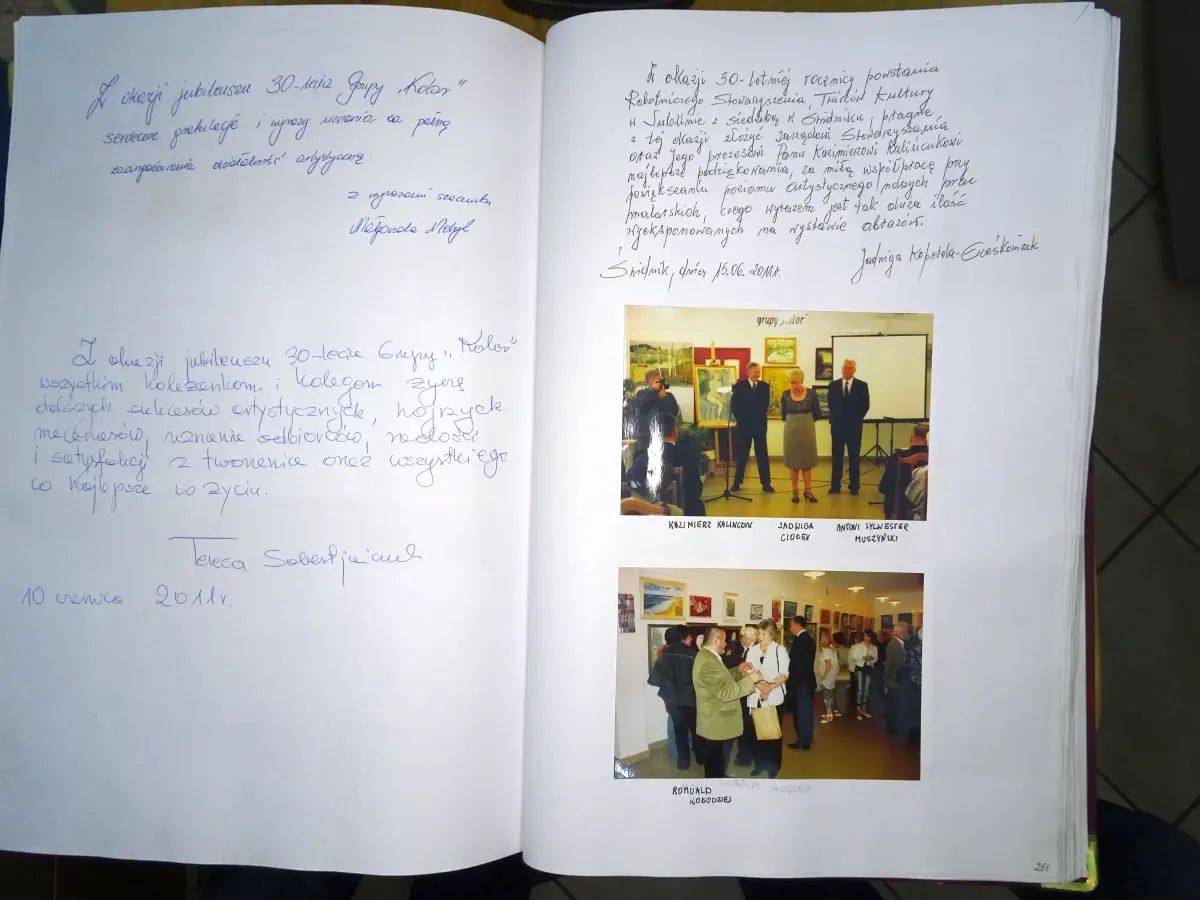 Z okazji jubileuszu 30-lecia Grupy „Kolor"
serdeczne gratulacje i wyrazy uznania za pełną
zaangażowania działalność artystyczną.
z wyrazami szacunku
Małgorzata
Z okazji jubileuszu 30-lecia Grupy „Kolor"
wszystkim koleżankom i kolegom życzę
dalszych sukcesów artystycznych, hojnych
mecenasów, uznania odbiorców, radości
i satysfakcji z tworzenia oraz wszystkiego
co najlepsze w życiu.
Teresa
10 czerwca 2011r.
Z okazji 30-letniej rocznicy powstania
Robotniczego Stowarzyszenia Twórców Kultury
w Lublinie z siedzibą w Świdniku, pragnę
z tej okazji złożyć Zarządowi Stowarzyszenia
oraz Jego prezesowi Panu Kazimierowi Kalińczukowi
najlepsze podziękowania, za miłą współpracę przy
powiększaniu poziomu artystycznego naszych prac
malarskich, czego wyrazem jest tak duża ilość
wyeksponowanych na wystawie obrazów.
Świdnik, dnia 15.06.2011r.
Jadwiga
grupy „Kolor"
KAZIMIERZ KALIŃCZUK
JADWIGA
CIOŁEK
ANTONI SYLWESTER
MUSZYŃSKI
ROMUALD
KOŁODZIEJ
261